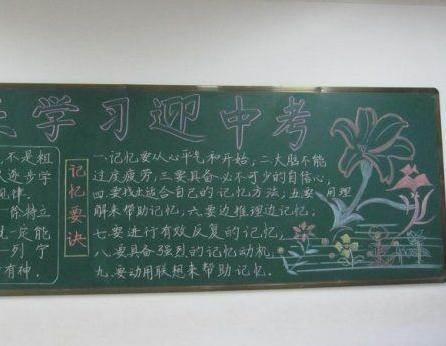 学习迎中考
不是粗
逐步学
规律.
阶特立
定能
列宁
有神.
记忆要诀
一.记忆要从心平气和开始,二.大脑不能
过度疲劳,三.要具备必不可少的自信心,
四.要找出适合自己的记忆方法,五.要用理
解来帮助记忆,六.要边推理边记忆.
七.要进行有效反复的记忆,
八.要具备强烈的记忆动机,
九.要动用联想来帮助记忆.